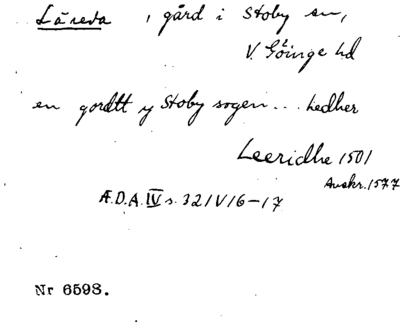 Läreda, gård i Stoby sn,
V. Göinge hd
en gordtt y Stoby sogen... hedher
Leeridhe 1501
Avskr. 1577
Æ.D.A. IV s. 321 V 16-17
Nr 6598.